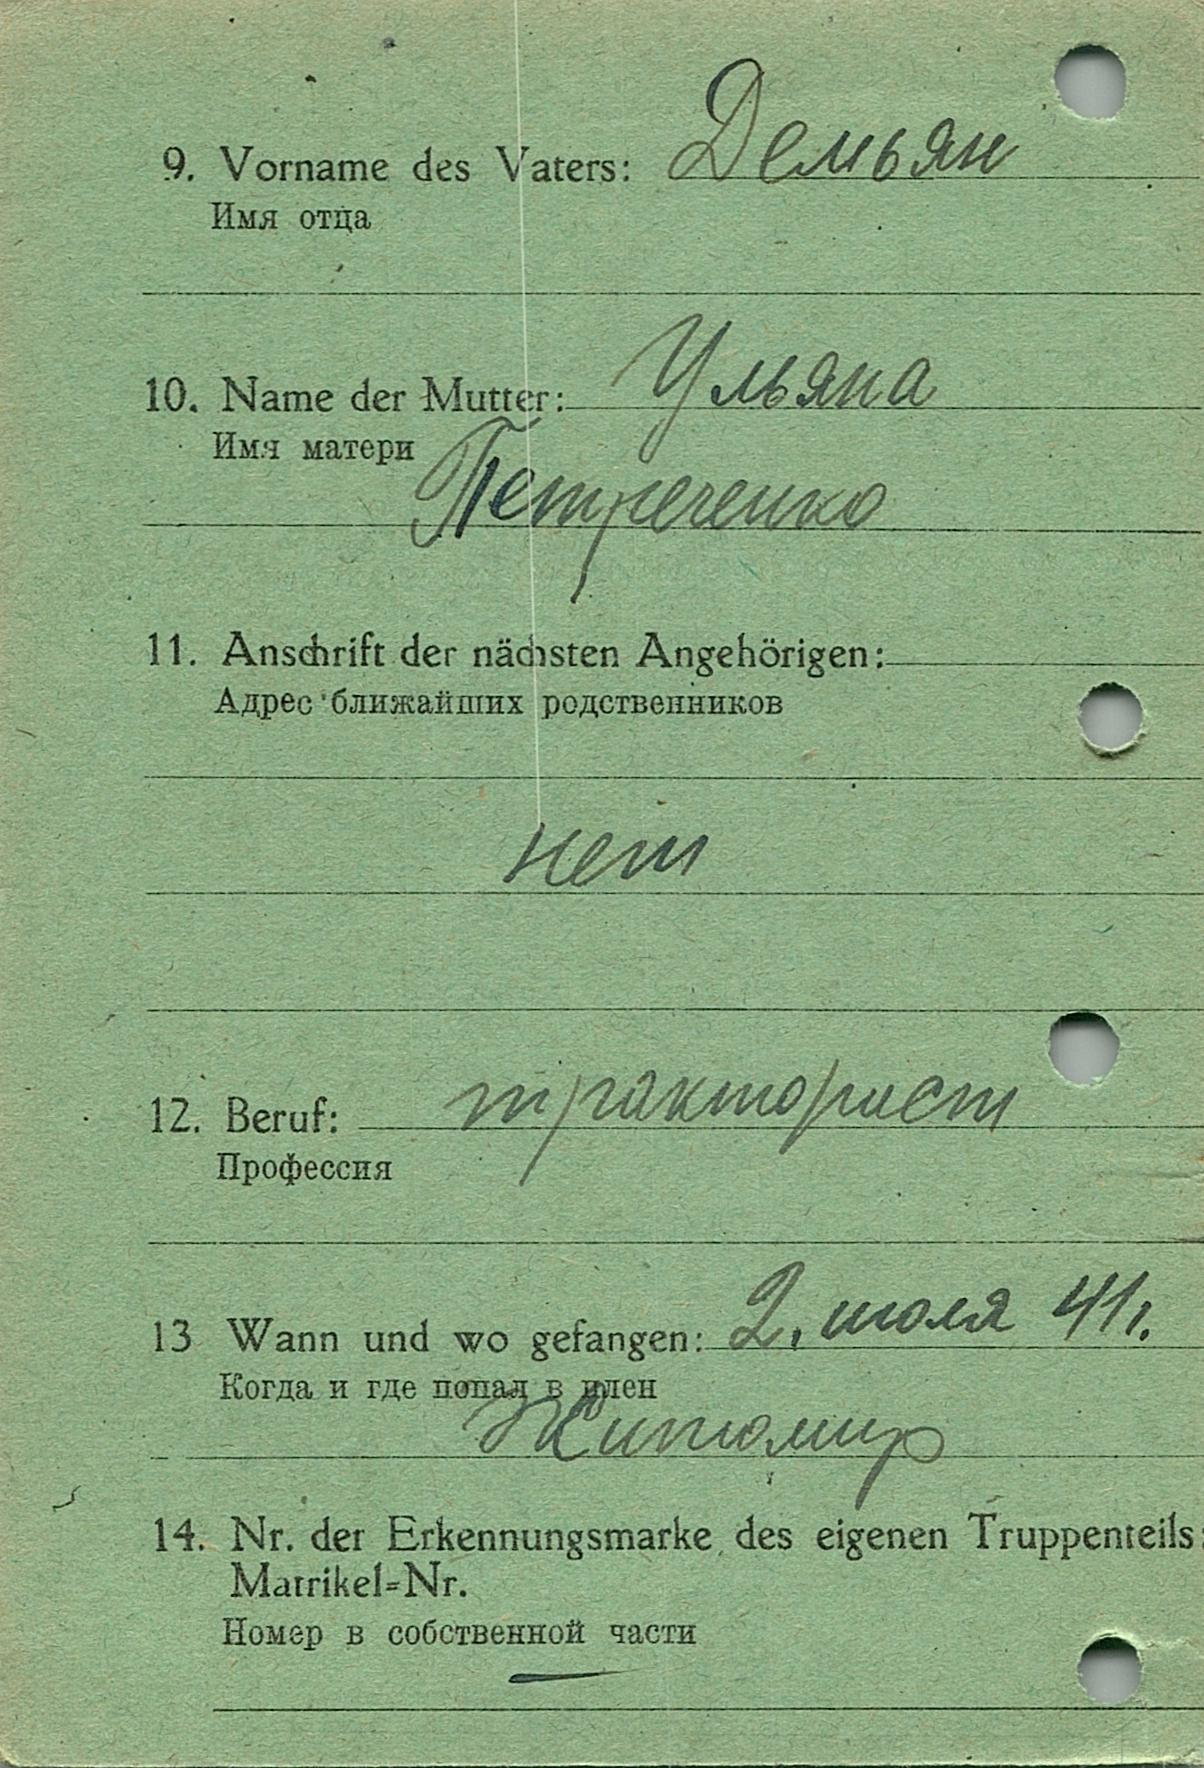 9. Vorname des Vaters: Демьян
Имя отца
10. Name der Mutter: Ульяна
Имя матери
Петреченко
11. Anschrift der nächsten Angehörigen:
Адрес ближайших родственников
нет
12. Beruf: тракторист
Профессия
13 Wann und wo gefangen: 2. июля 41г.
Когда и где попал в плен
Житомир
14. Nr. der Erkennungsmarke des eigenen Truppenteils:
Matrikel=Nr.
Номер в собственной части
—